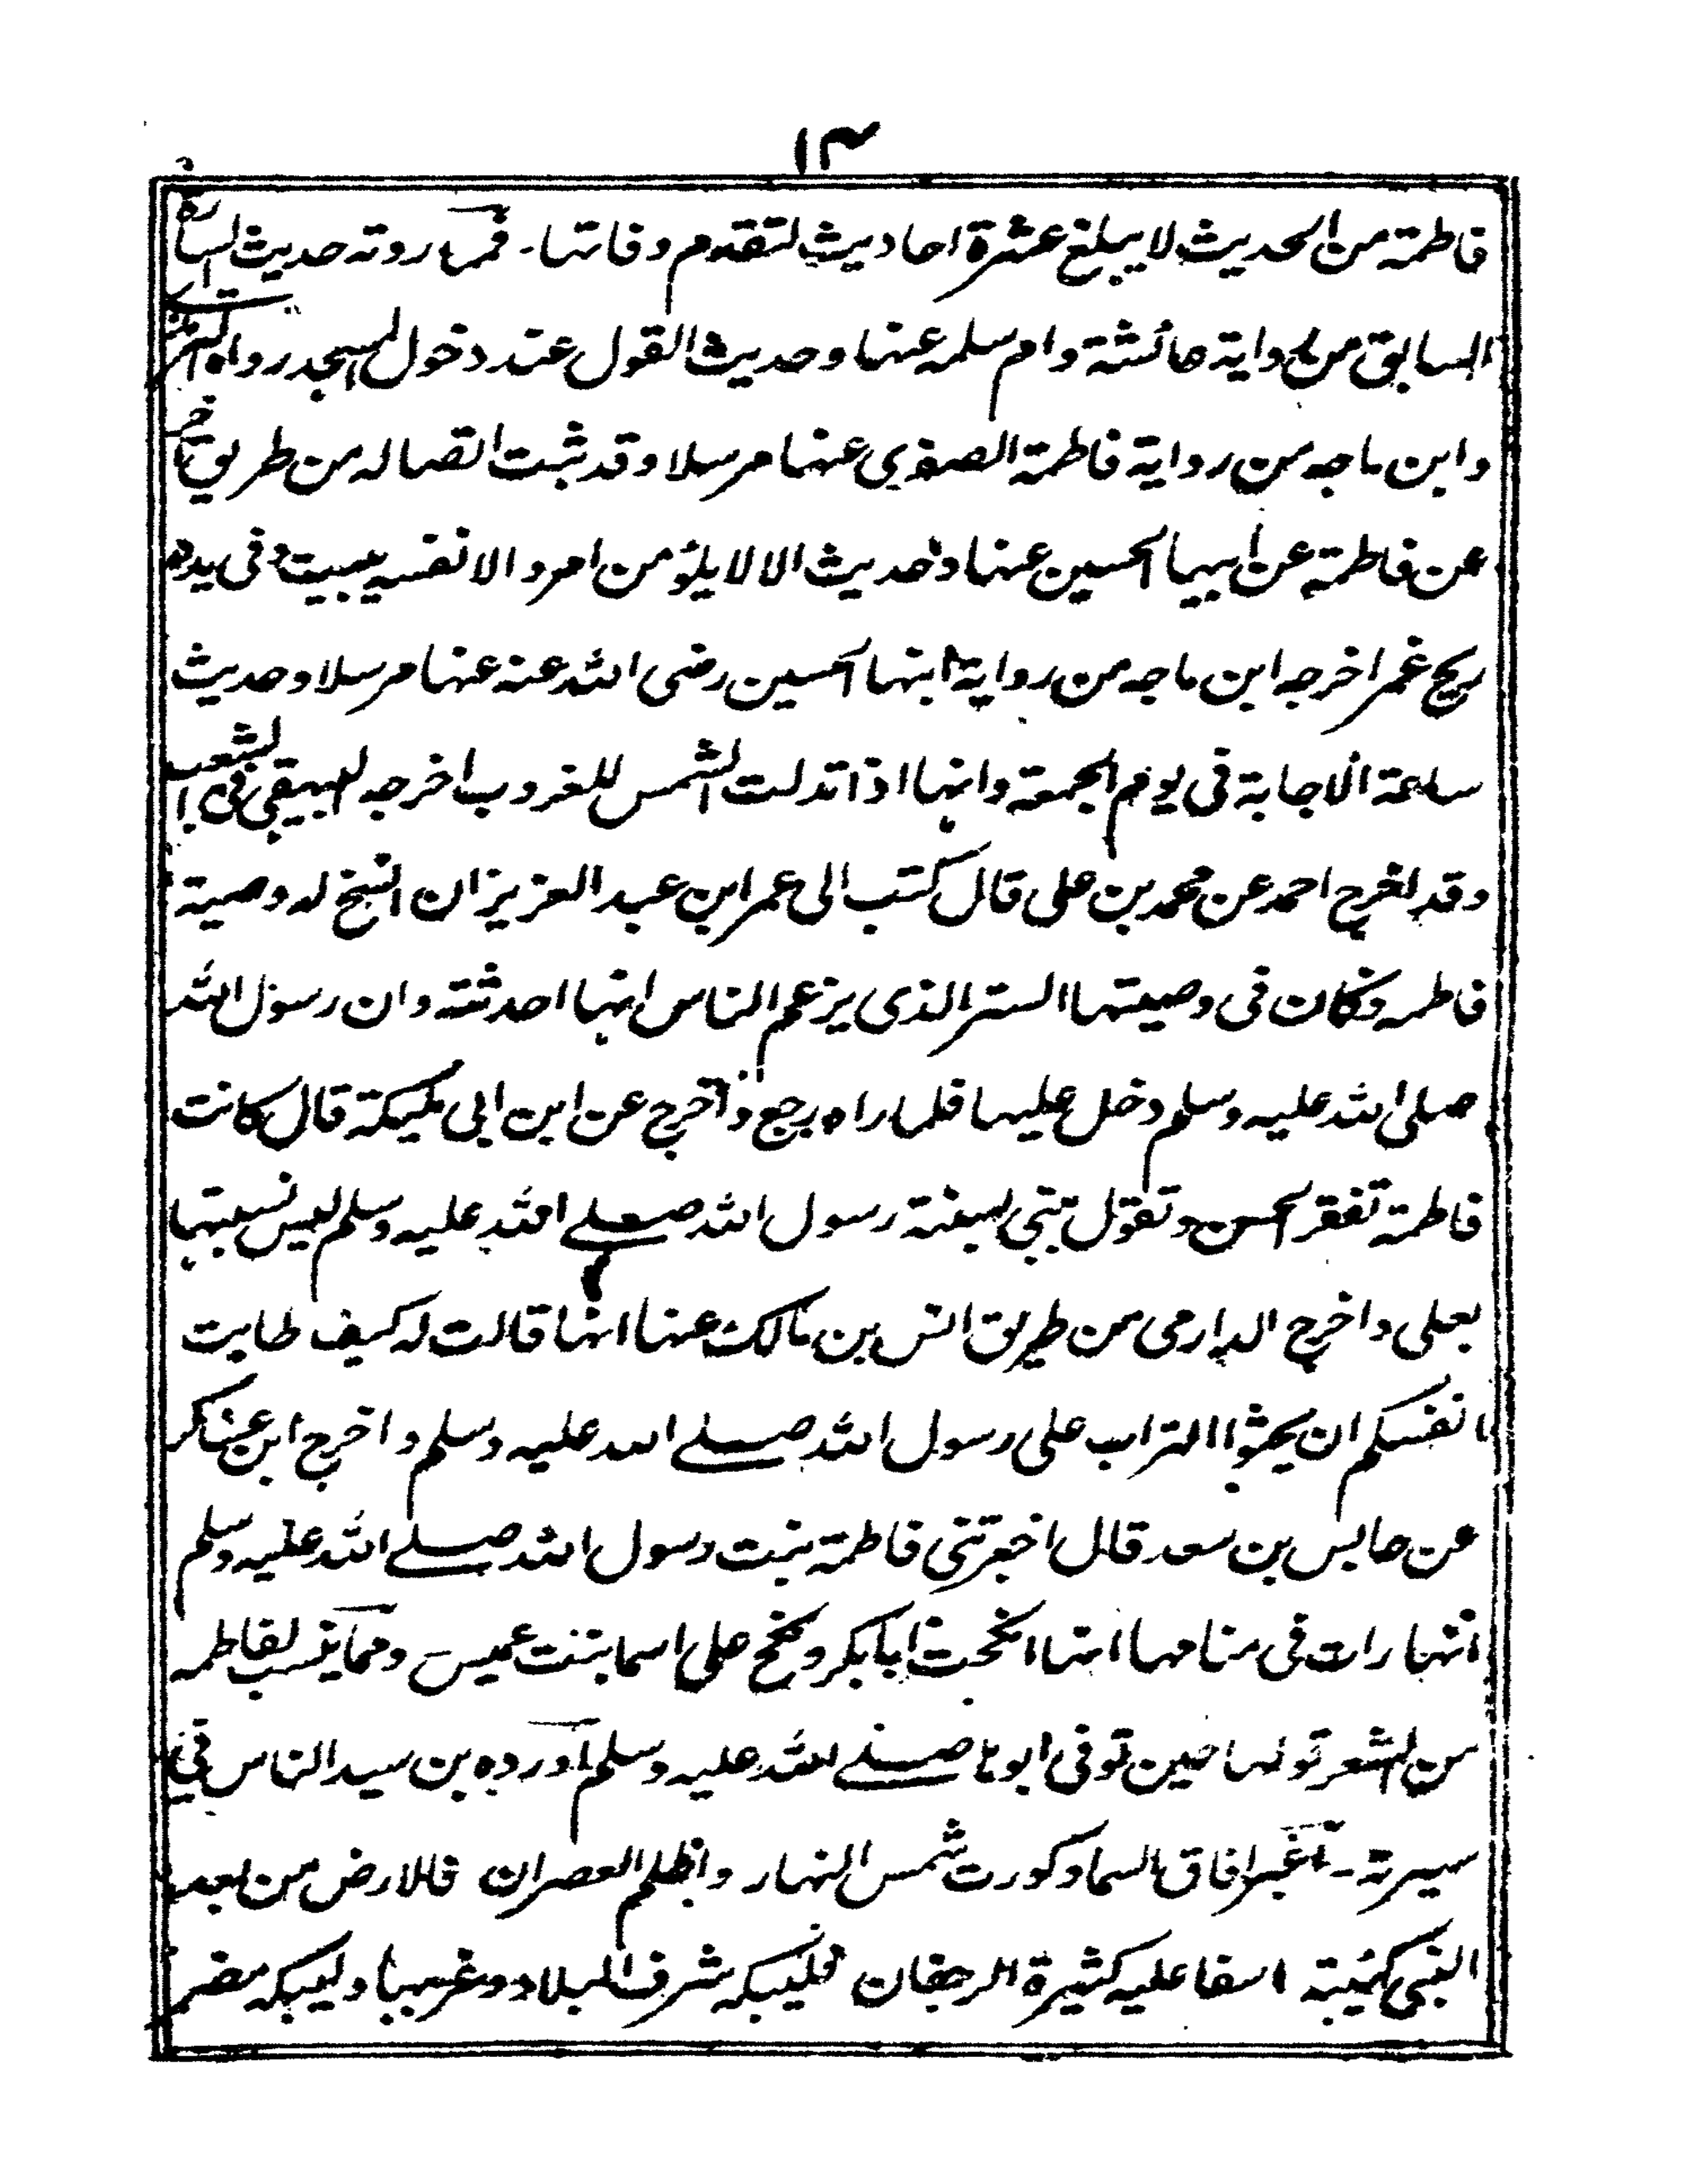 ١٣
فاطمة من الحديث لا يبلغ عشرة احاديث لتقدم وفاتها۔ فمما روته حديث السارة
السابق من رواية عائشة وام سلمه عنها وحديث القول عند دخول المسجد رواه الترمذى
وابن ماجه من رواية فاطمة الصغرى عنها مرسلا وقد ثبت اتصاله من طريق
عن فاطمة عن ابيها الحسين عنها وحديث الا لا يلومن امرو الا نفسه يبيت وفى يده
ريح غمر اخرجه ابن ماجه من رواية ابنها الحسين رضى الله عنه عنها مرسلا وحديث
ساعة الاجابة فى يوم الجمعة وانها اذا تدلت الشمس للغروب اخرجه البيهقى فى الشعب
وقد اخرج احمد عن محمد بن على قال كتب الى عمر ابن عبد العزيز ان انسخ له وصية
فاطمه وكان فى وصيتها الستر الذى يزعم الناس انها احدثته وان رسول الله
صلى الله عليه وسلم دخل عليها فلما راه رجع واخرج عن ابن ابى مليكة قال كانت
فاطمة تنقز الحسن وتقول بنى لسبغة رسول الله صلے الله عليه وسلم ليس نسبتها
بعلى واخرج الدارمى من طريق انس بن مالك عنها انها قالت له كيف طابت
انفسكم ان يحثوا التراب على رسول الله صلے الله عليه وسلم واخرج ابن عساكر
عن حابس بن سعد قال اخبرتنى فاطمة بنت رسول الله صلے الله عليه وسلم
انها رات فى منامها انها انكحت ابا بكر ونكح على اسما بنت عميس ومما ينسب لفاطمه
من الشعر قولها حين توفى ابوها صلے الله عليه وسلم اورده بن سيد الناس فى
سيرته۔ اغبر افاق السما وكورت شمس النهار واظلم العصران فالارض من بعد
النبى كئيبة اسفا عليه كثيرة الرجفان فليبكه شرف البلاد وغربها وليبكه مضر